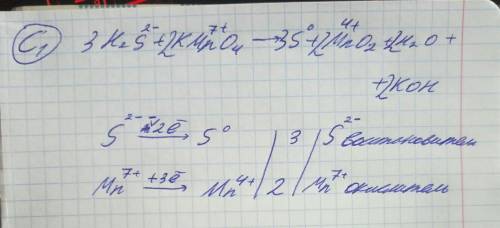 C₁ 3H₂S²⁻+2KMn⁷⁺O₄ → 3S⁰+2Mn⁴⁺O₂+2H₂O+
+2KOH
S²⁻ –2ē→ S⁰ | 3 | S²⁻ восстановитель
Mn⁷⁺ +3ē→ Mn⁴⁺ | 2 | Mn⁷⁺ окислитель